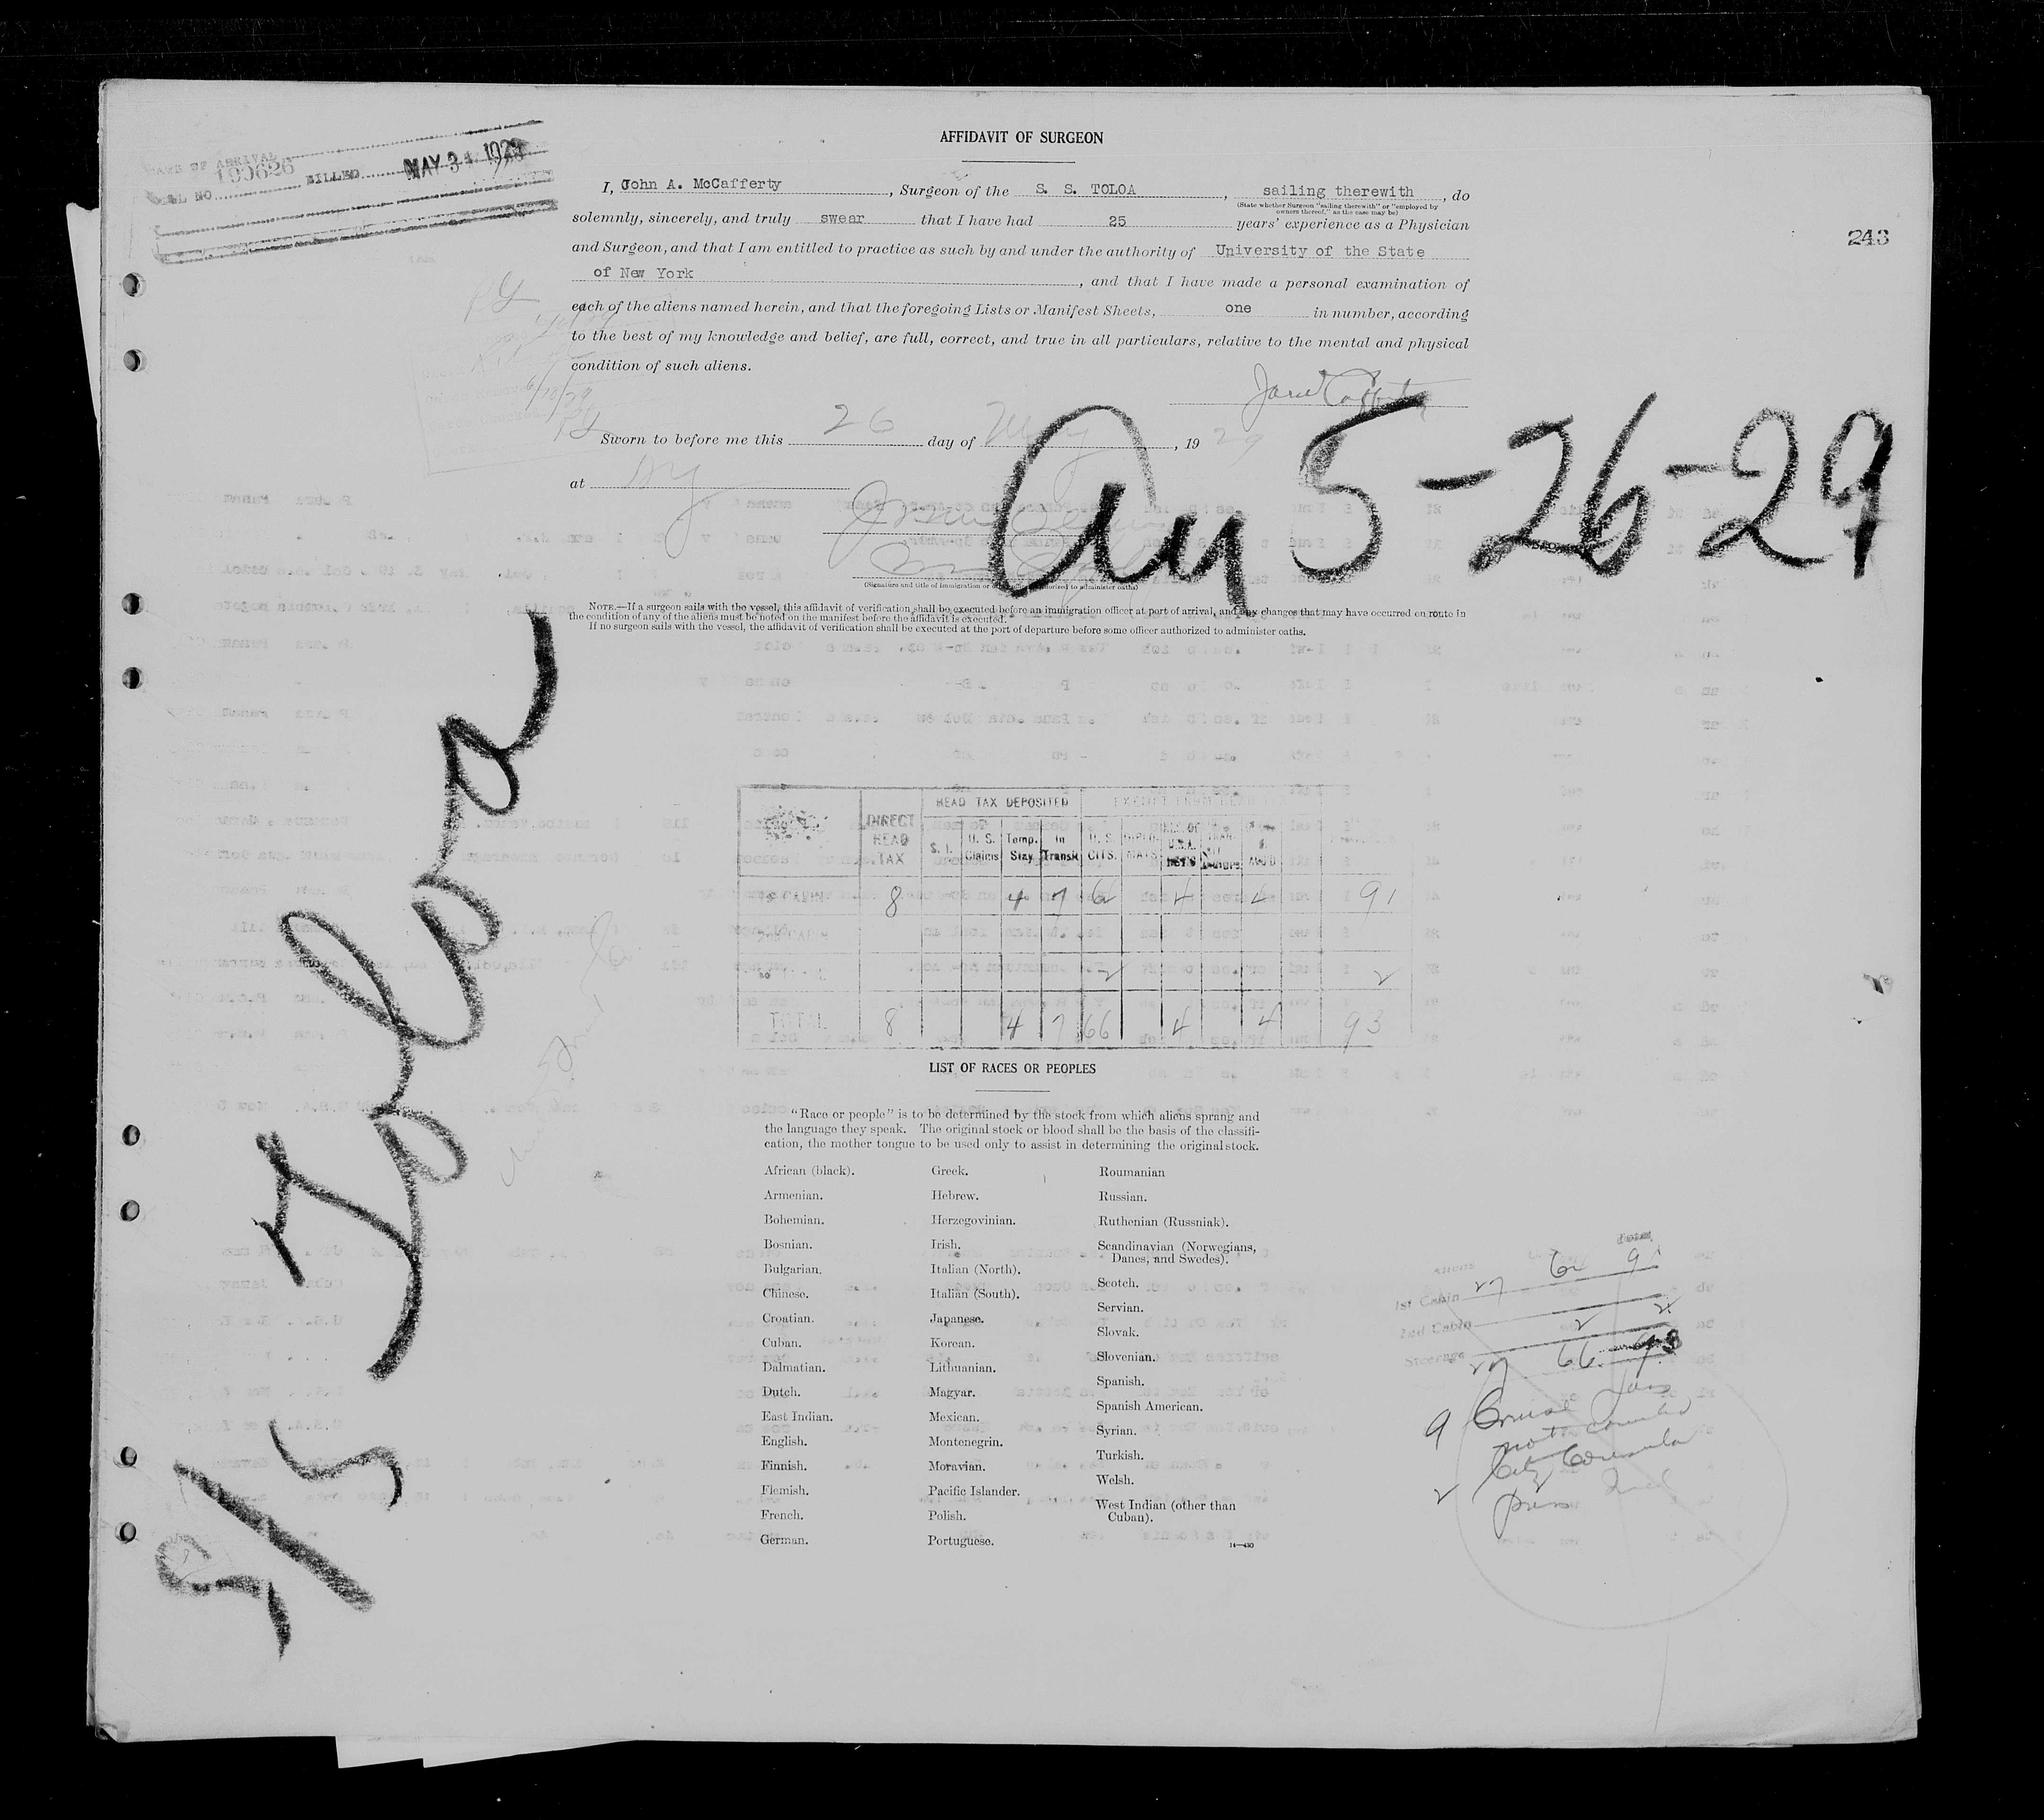 AFFIDAVIT OF SURGEON
DATE OF ARRIVAL
BILL NO. 190626 BILLED MAY 31 1929
243
I, John A. McCafferty, Surgeon of the S. S. TOLOA, sailing therewith, do
(State whether Surgeon "sailing therewith" or "employed by
owners thereof," as the case may be)
solemnly, sincerely, and truly swear that I have had 25 years' experience as a Physician
and Surgeon, and that I am entitled to practice as such by and under the authority of University of the State
of New York, and that I have made a personal examination of
each of the aliens named herein, and that the foregoing Lists or Manifest Sheets, one in number, according
to the best of my knowledge and belief, are full, correct, and true in all particulars, relative to the mental and physical
condition of such aliens.
Sworn to before me this 26 day of May, 1929
at NY
5-26-29
(Signature and title of immigration or other officer authorized to administer oaths)
NOTE.—If a surgeon sails with the vessel, this affidavit of verification shall be executed before an immigration officer at port of arrival, and any changes that may have occurred en route in
the condition of any of the aliens must be noted on the manifest before the affidavit is executed.
If no surgeon sails with the vessel, the affidavit of verification shall be executed at the port of departure before some officer authorized to administer oaths.
S/S Toloa
HEAD TAX DEPOSITED EXEMPT FROM HEAD TAX
DIRECT HEAD TAX S. I. U. S. Claims Temp. Stay In Transit U. S. CITS.
1st CABIN 8 4 7 64 4 4 91
2nd CABIN
2 2
TOTAL 8 4 7 66 4 4 93
LIST OF RACES OR PEOPLES
"Race or people" is to be determined by the stock from which aliens sprang and
the language they speak. The original stock or blood shall be the basis of the classifi-
cation, the mother tongue to be used only to assist in determining the original stock.
African (black). Greek. Roumanian
Armenian. Hebrew. Russian.
Bohemian. Herzegovinian. Ruthenian (Russniak).
Bosnian. Irish. Scandinavian (Norwegians,
Danes, and Swedes).
Bulgarian. Italian (North).
Chinese. Italian (South). Scotch.
Croatian. Japanese. Servian.
Cuban. Korean. Slovak.
Dalmatian. Lithuanian. Slovenian.
Dutch. Magyar. Spanish.
East Indian. Mexican. Spanish American.
English. Montenegrin. Syrian.
Finnish. Moravian. Turkish.
Flemish. Pacific Islander. Welsh.
French. Polish. West Indian (other than
Cuban).
German. Portuguese.
14—430
Aliens Total
1st Cabin 27 64 91
2nd Cabin 2 2
Steerage 27 66 93
9 Cruise
not counted
2